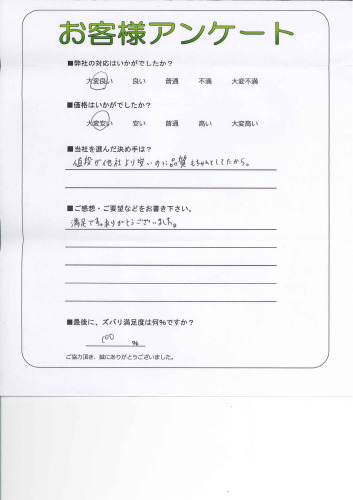 お客様アンケート
■弊社の対応はいかがでしたか?
大変良い 良い 普通 不満 大変不満
■価格はいかがでしたか?
大変安い 安い 普通 高い 大変高い
■当社を選んだ決め手は?
値段が他社より安いのに品質もちゃんとしてたから。
■ご感想・ご要望などをお書き下さい。
満足です。ありがとうございました。
■最後に、ズバリ満足度は何%ですか?
100 %
ご協力頂き、誠にありがとうございました。